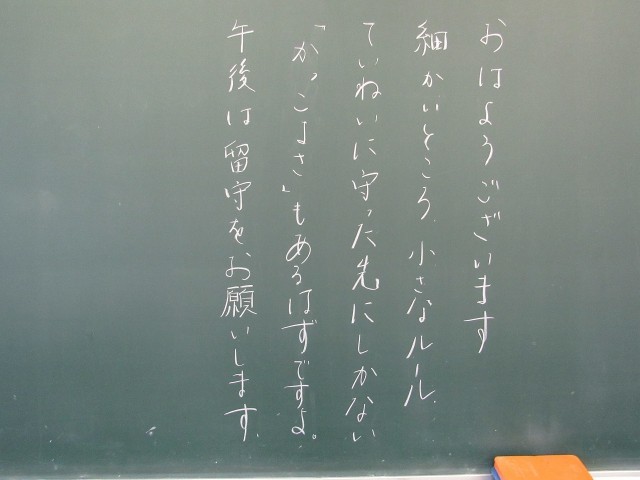 おはようございます
細かいところ、小さなルール、
ていねいに守った先にしかない
「かっこよさ」もあるはずですよ。
午後は留守をお願いします。